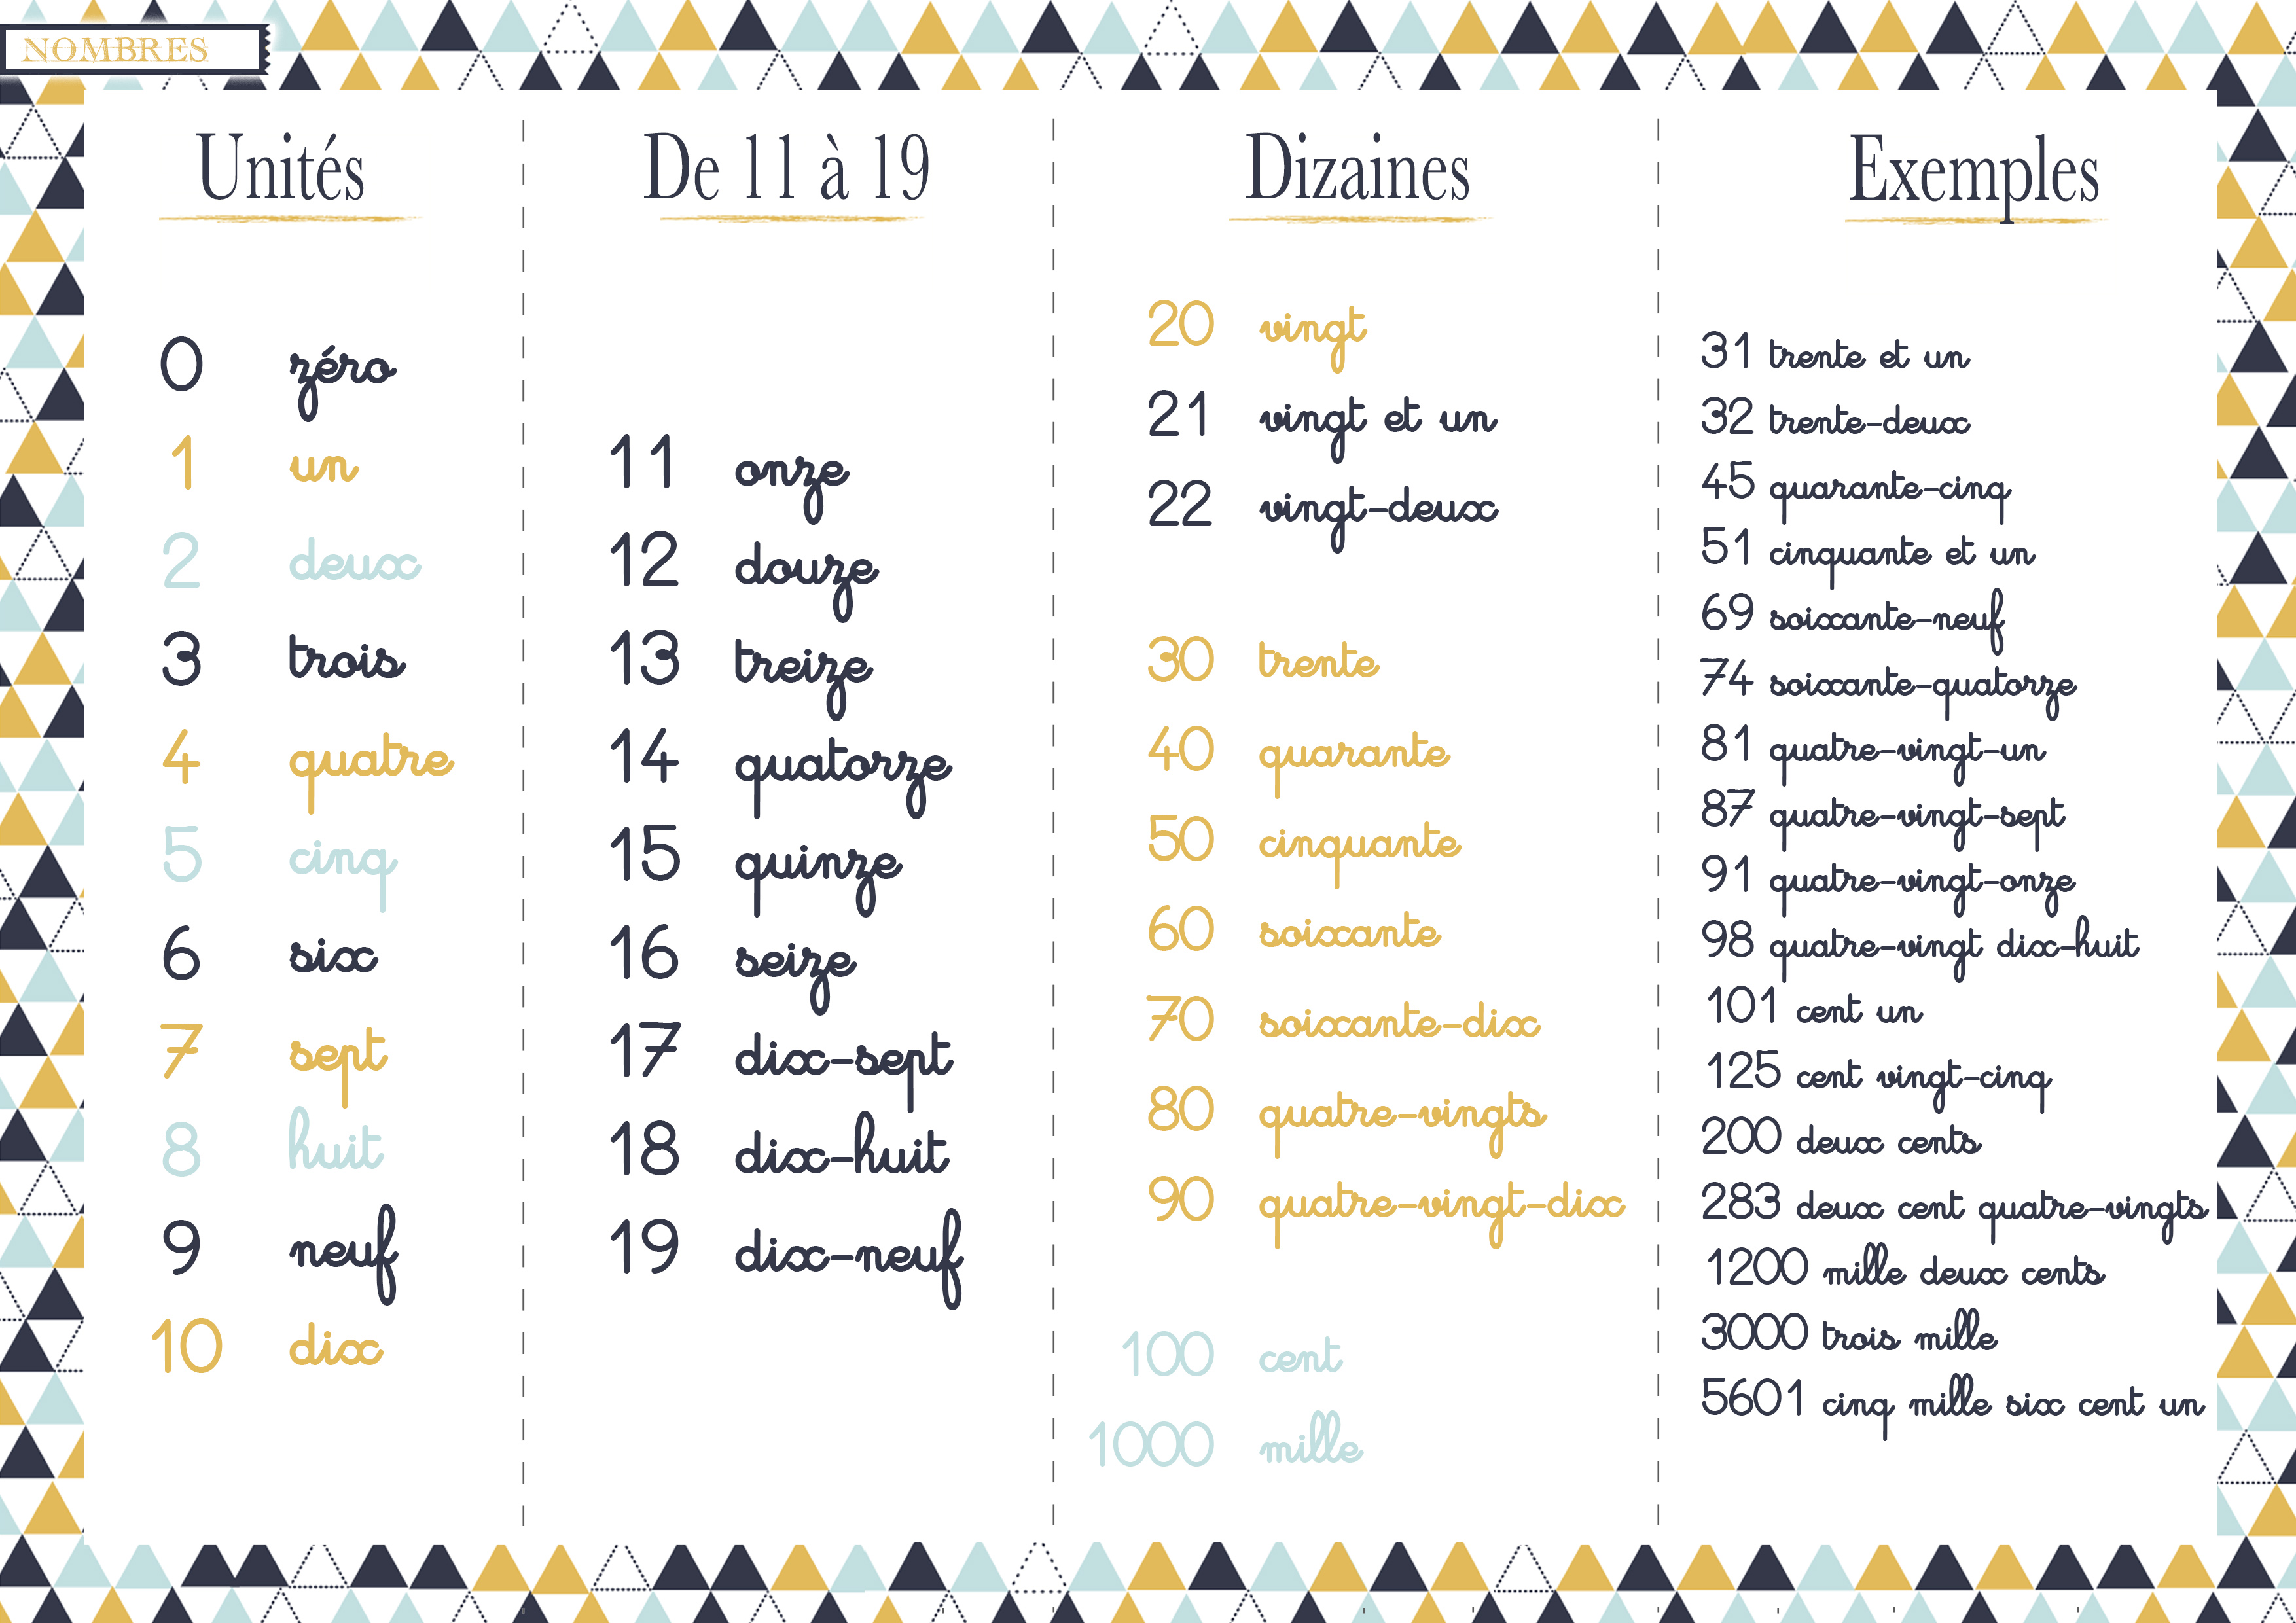 NOMBRES
Unités
0 zéro
1 un
2 deux
3 trois
4 quatre
5 cinq
6 six
7 sept
8 huit
9 neuf
10 dix
De 11 à 19
11 onze
12 douze
13 treize
14 quatorze
15 quinze
16 seize
17 dix-sept
18 dix-huit
19 dix-neuf
Dizaines
20 vingt
21 vingt et un
22 vingt-deux
30 trente
40 quarante
50 cinquante
60 soixante
70 soixante-dix
80 quatre-vingts
90 quatre-vingt-dix
100 cent
1000 mille
Exemples
31 trente et un
32 trente-deux
45 quarante-cinq
51 cinquante et un
69 soixante-neuf
74 soixante-quatorze
81 quatre-vingt-un
87 quatre-vingt-sept
91 quatre-vingt-onze
98 quatre-vingt dix-huit
101 cent un
125 cent vingt-cinq
200 deux cents
283 deux cent quatre-vingts
1200 mille deux cents
3000 trois mille
5601 cinq mille six cent un